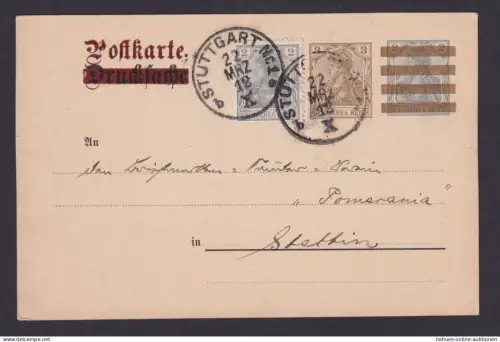 Postkarte.
Drucksache
STUTTGART Nr. 1
22
MRZ
18
X
b
STUTTG
22
MRZ
18
X
b
2
2
3
3
2
An
den Briefmarken = Tauscher = Verein
„ Pomerania "
in Stettin
nahues-online-auktionen